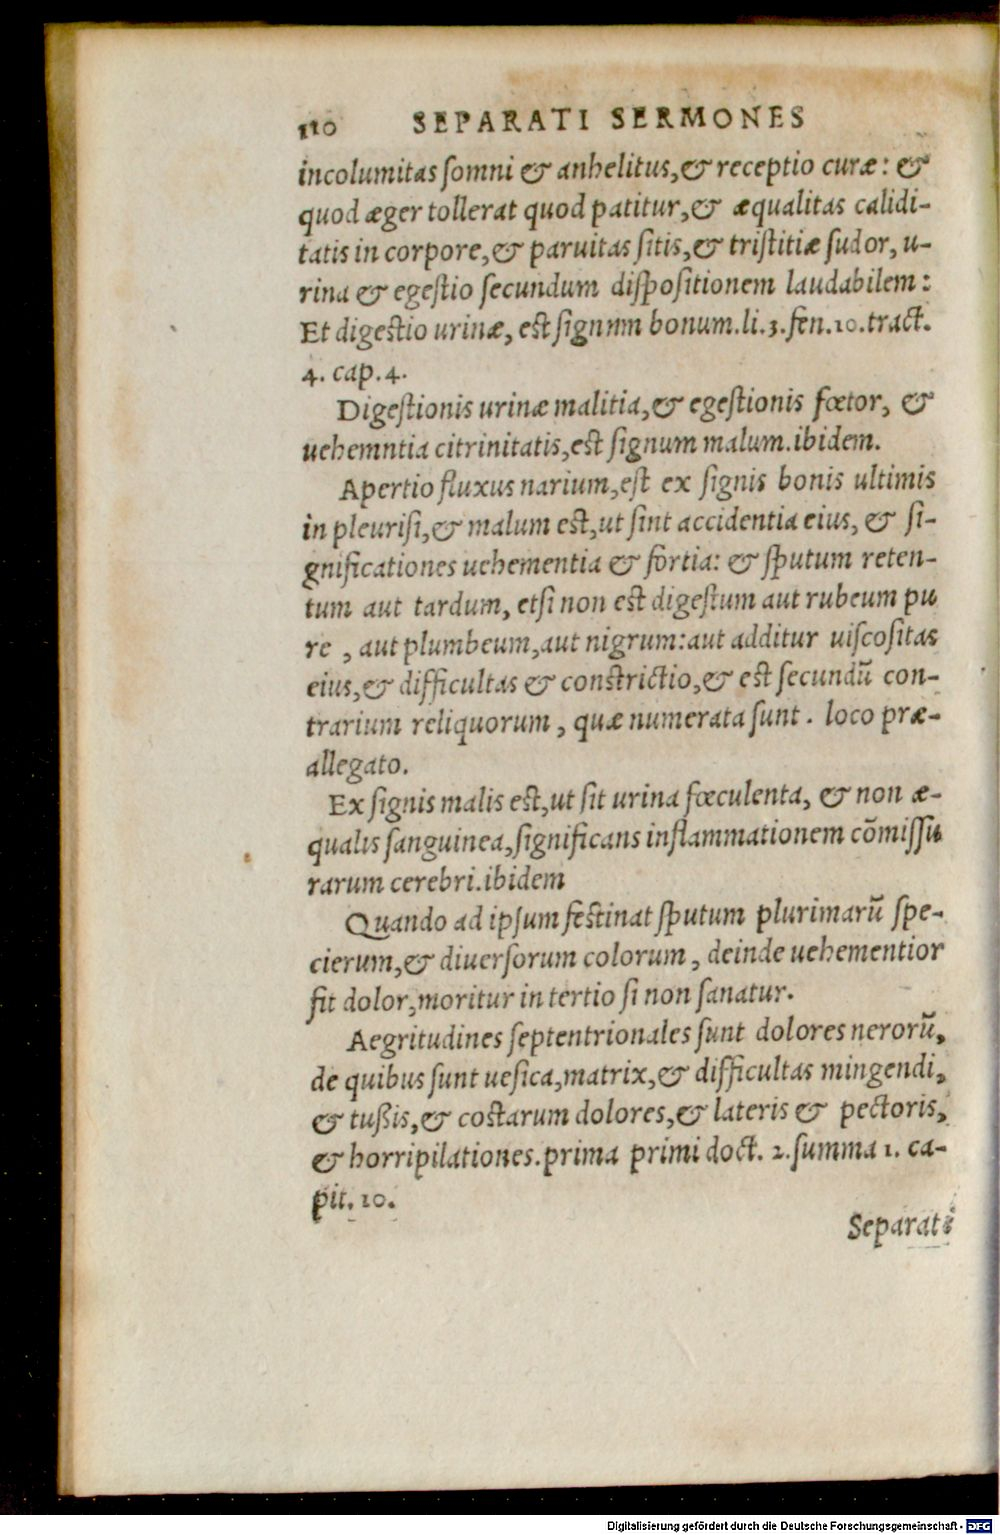 110 SEPARATI SERMONES
incolumitas somni & anhelitus, & receptio curæ: &
quod æger tollerat quod patitur, & æqualitas calidi-
tatis in corpore, & paruitas sitis, & tristitiæ sudor, u-
rina & egestio secundum dispositionem laudabilem:
Et digestio urinæ, est signnm bonum. li. 3. fen. 10. tract.
4. cap. 4.
Digestionis urinæ malitia, & egestionis fœtor, &
uehemntia citrinitatis, est signum malum. ibidem.
Apertio fluxus narium, est ex signis bonis ultimis
in pleurisi, & malum est, ut sint accidentia eius, & si-
gnificationes uehementia & fortia: & sputum reten-
tum aut tardum, etsi non est digestum aut rubeum pu
re , aut plumbeum, aut nigrum: aut additur uiscositas
eius, & difficultas & constrictio, & est secundũ con-
trarium reliquorum , quæ numerata sunt . loco præ-
allegato.
Ex signis malis est, ut sit urina fœculenta, & non æ-
qualis sanguinea, significans inflammationem cõmissu
rarum cerebri. ibidem
Quando ad ipsum festinat sputum plurimarũ spe-
cierum, & diuersorum colorum , deinde uehementior
fit dolor, moritur in tertio si non sanatur.
Aegritudines septentrionales sunt dolores nerorũ,
de quibus sunt uesica, matrix, & difficultas mingendi,
& tußis, & costarum dolores, & lateris & pectoris,
& horripilationes. prima primi doct. 2. summa 1. ca-
pit. 10.
Separati
Digitalisierung gefördert durch die Deutsche Forschungsgemeinschaft - DFG